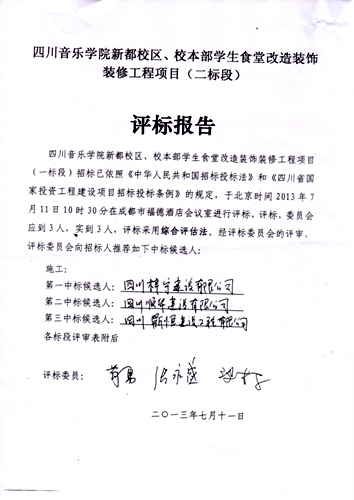 四川音乐学院新都校区、校本部学生食堂改造装饰
装修工程项目（二标段）
评标报告
四川音乐学院新都校区、校本部学生食堂改造装饰装修工程项目
（一标段）招标已依照《中华人民共和国招标投标法》和《四川省国
家投资工程建设项目招标投标条例》的规定，于北京时间2013年7
月11日10时30分在成都市福德酒店会议室进行评标，评标，委员会
应到3人，实到3人，评标采用综合评估法。经评标委员会的评审，
评标委员会向招标人推荐如下中标候选人：
施工：
第一中标候选人：四川梓宁建设有限公司
第二中标候选人：四川顺华建设有限公司
第三中标候选人：四川 建设工程有限公司
各标段评审表附后
评标委员：
二〇一三年七月十一日